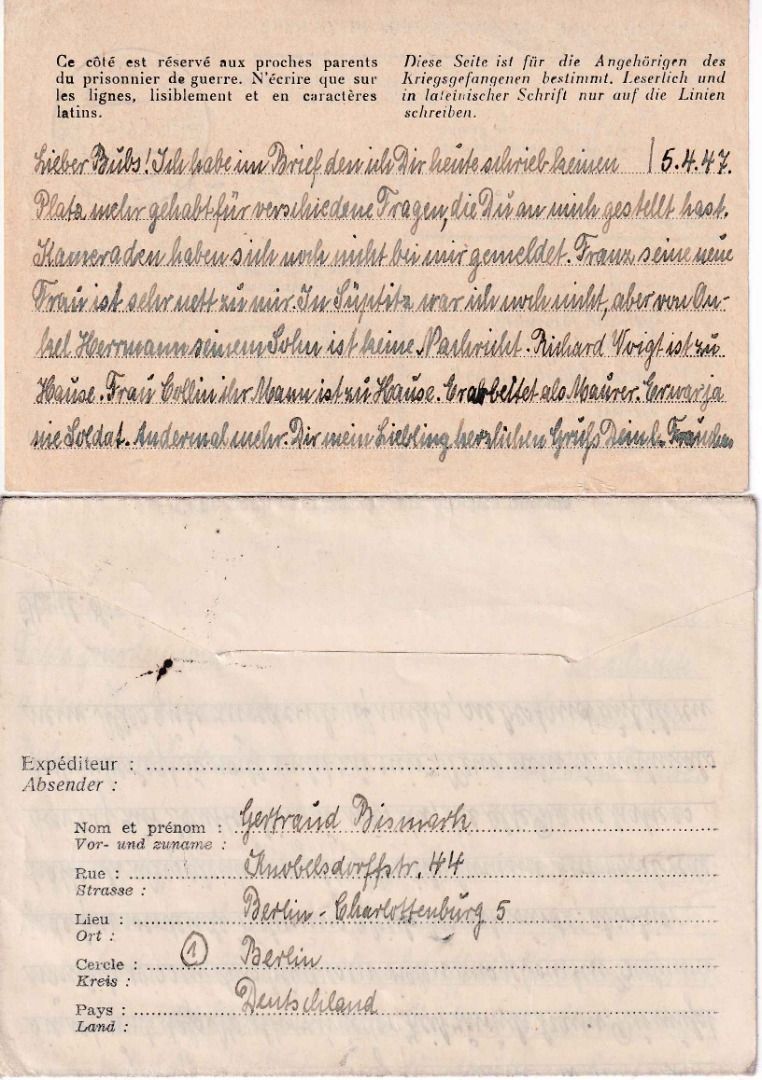 Ce côté est réservé aux proches parents
du prisonnier de guerre. N'écrire que sur
les lignes, lisiblement et en caractères
latins.
Diese Seite ist für die Angehörigen des
Kriegsgefangenen bestimmt. Leserlich und
in lateinischer Schrift nur auf die Linien
schreiben.
Lieber Bubs! Ich habe im Brief den ich Dir heute schrieb keinen | 5.4.47.
Platz mehr gehabt für verschiedene Fragen, die Du an mich gestellt hast.
Kameraden haben sich noch nicht bei mir gemeldet. Franz seine neue
Frau ist sehr nett zu mir. In Süptitz war ich noch nicht, aber von On-
kel Herrmann seinem Sohn ist keine Nachricht. Richard Voigt ist zu
Hause. Frau Collin ihr Mann ist zu Hause. Er arbeitet als Maurer. Er war ja
nie Soldat. Andermal mehr. Dir mein Liebling herzlichen Gruß Dein l. Frauchen
Expéditeur :
Absender :
Nom et prénom : Gertraud Bismark
Vor- und zuname :
Rue : Knobelsdorffstr. 44
Strasse :
Lieu : Berlin - Charlottenburg 5
Ort :
Cercle : 1 Berlin
Kreis :
Pays : Deutschland
Land :